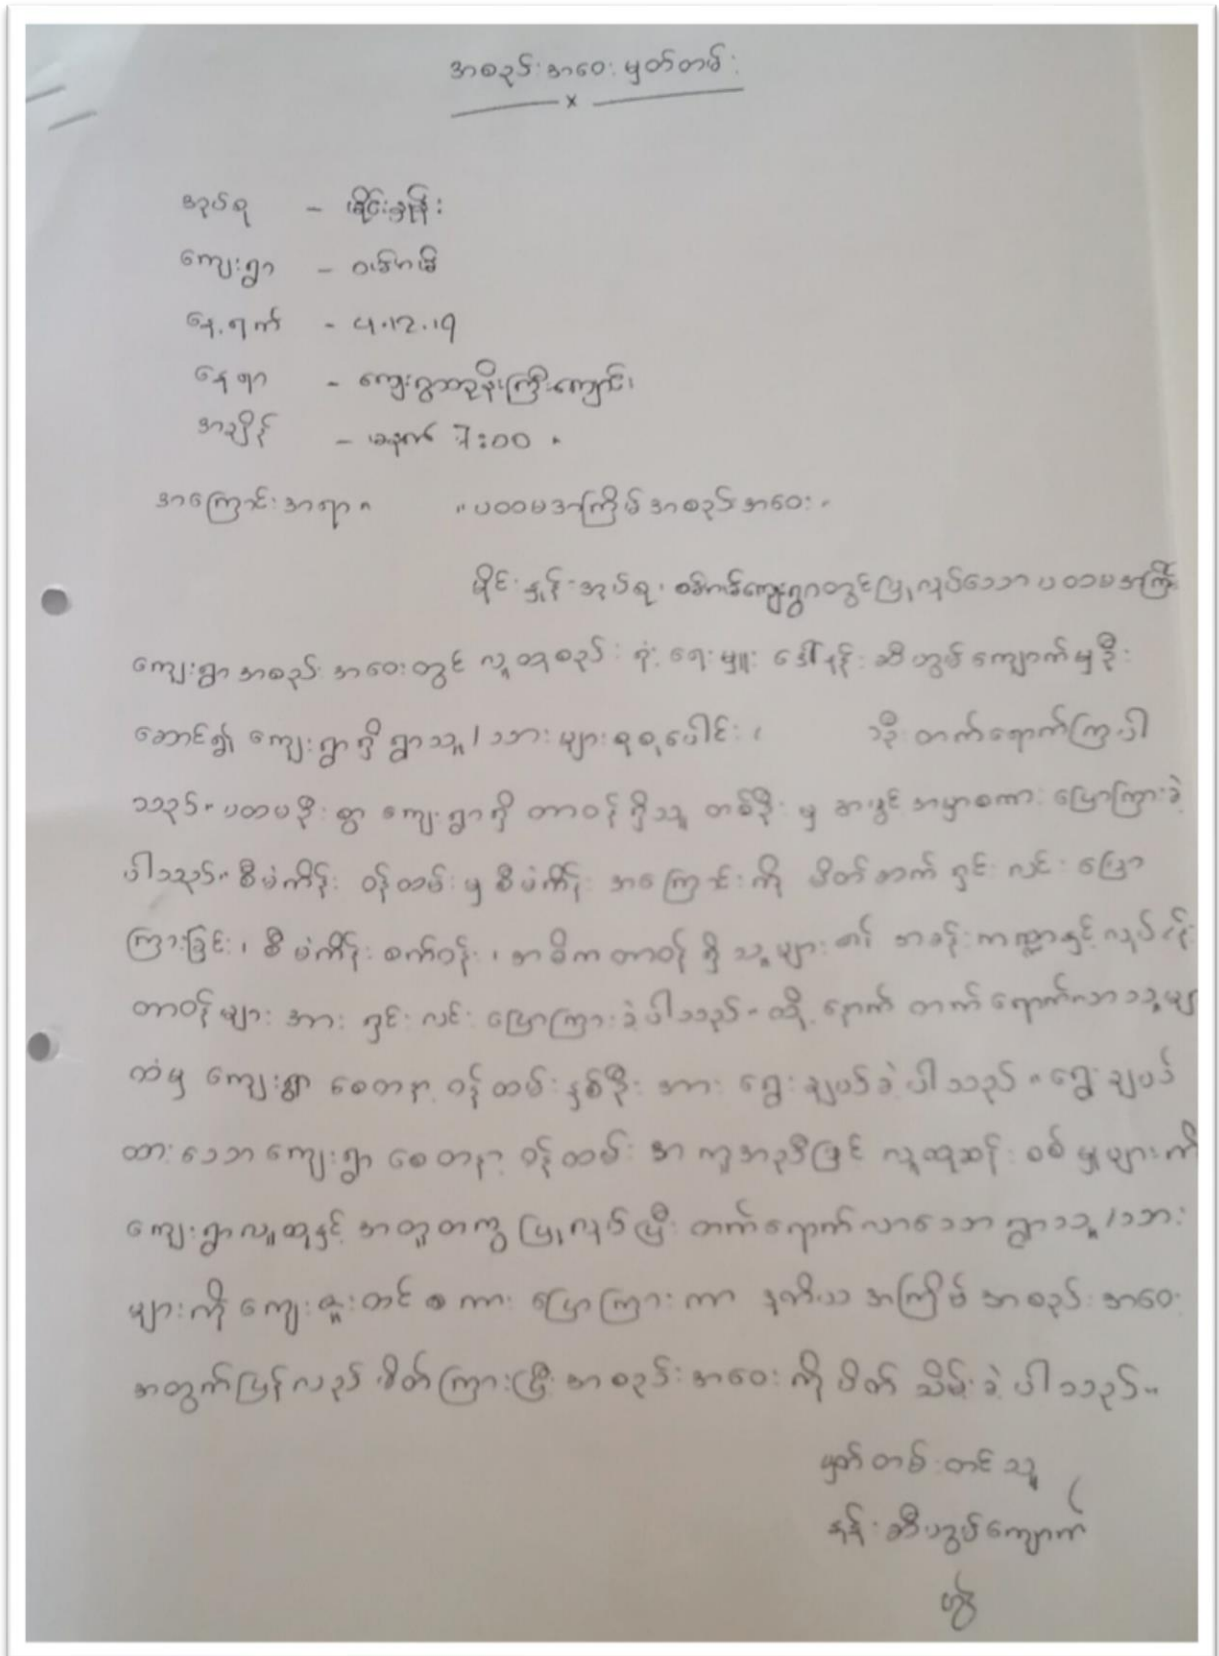 အစည်းအဝေး မှတ်တမ်း
x
အုပ်စု - မိုင်းနှုန်း
ကျေးရွာ -
နေ့ရက် - ၎.12.19
နေရာ - ကျေးရွာဘုန်းကြီးကျောင်း
အချိန် - မနက် 7:00 ။
အကြောင်းအရာ ။ "ပထမအကြိမ်အစည်းအဝေး"
မိုင်းနှုန်းအုပ်စု၊ ကျေးရွာတွင်ပြုလုပ်သောပထမအကြိမ်
ကျေးရွာအစည်းအဝေးတွင် လူထုစည်းရုံးရေးမှူး ဒေါ်နန်း ကျောက်မှဦး
ဆောင်၍ ကျေးရွာရှိ ရွာသူ/သားများစုစုပေါင်း ( သိုးတက်ရောက်ကြပါ
သည်။ ပထမဦးစွာ ကျေးရွာရှိ တာဝန်ရှိသူ တစ်ဦးမှ အဖွင့်အမှာစကား ပြောကြားခဲ့
ပါသည်။ စီမံကိန်း ဝန်ထမ်းမှ စီမံကိန်းအကြောင်းကို မိတ်ဆက် ရှင်းလင်းပြော
ကြားခြင်း၊ စီမံကိန်းစက်ဝန်း၊ အဓိကတာဝန်ရှိသူများ၏ အခန်းကဏ္ဍနှင့်လုပ်ငန်း
တာဝန်များအား ရှင်းလင်းပြောကြားခဲ့ပါသည်။ ထို့နောက် တက်ရောက်လာသူများ
ထံမှ ကျေးရွာစေတနာ့ဝန်ထမ်းနှစ်ဦးအား ရွေးချယ်ခဲ့ပါသည်။ ရွေးချယ်
ထားသောကျေးရွာစေတနာ့ဝန်ထမ်းအကူအညီဖြင့် လူထုဆန်းစစ်မှုများကို
ကျေးရွာလူထုနှင့်အတူတကွ ပြုလုပ်ပြီး တက်ရောက်လာသောရွာသူ/သား
များကို ကျေးဇူးတင်စကားပြောကြားကာ ဒုတိယအကြိမ်အစည်းအဝေး
အတွက်ပြန်လည်ဖိတ်ကြားပြီး အစည်းအဝေးကို ပိတ်သိမ်းခဲ့ပါသည်။
မှတ်တမ်းတင်သူ
နန်း ကျောက်